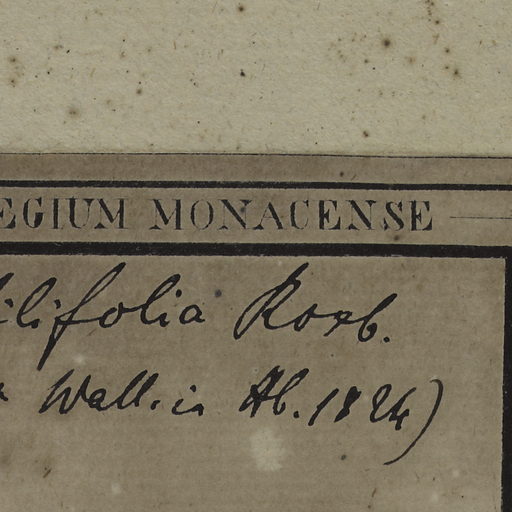 EGIUM MONACENSE
ilifolia Roxb.
Wall. in Hb. 1824)